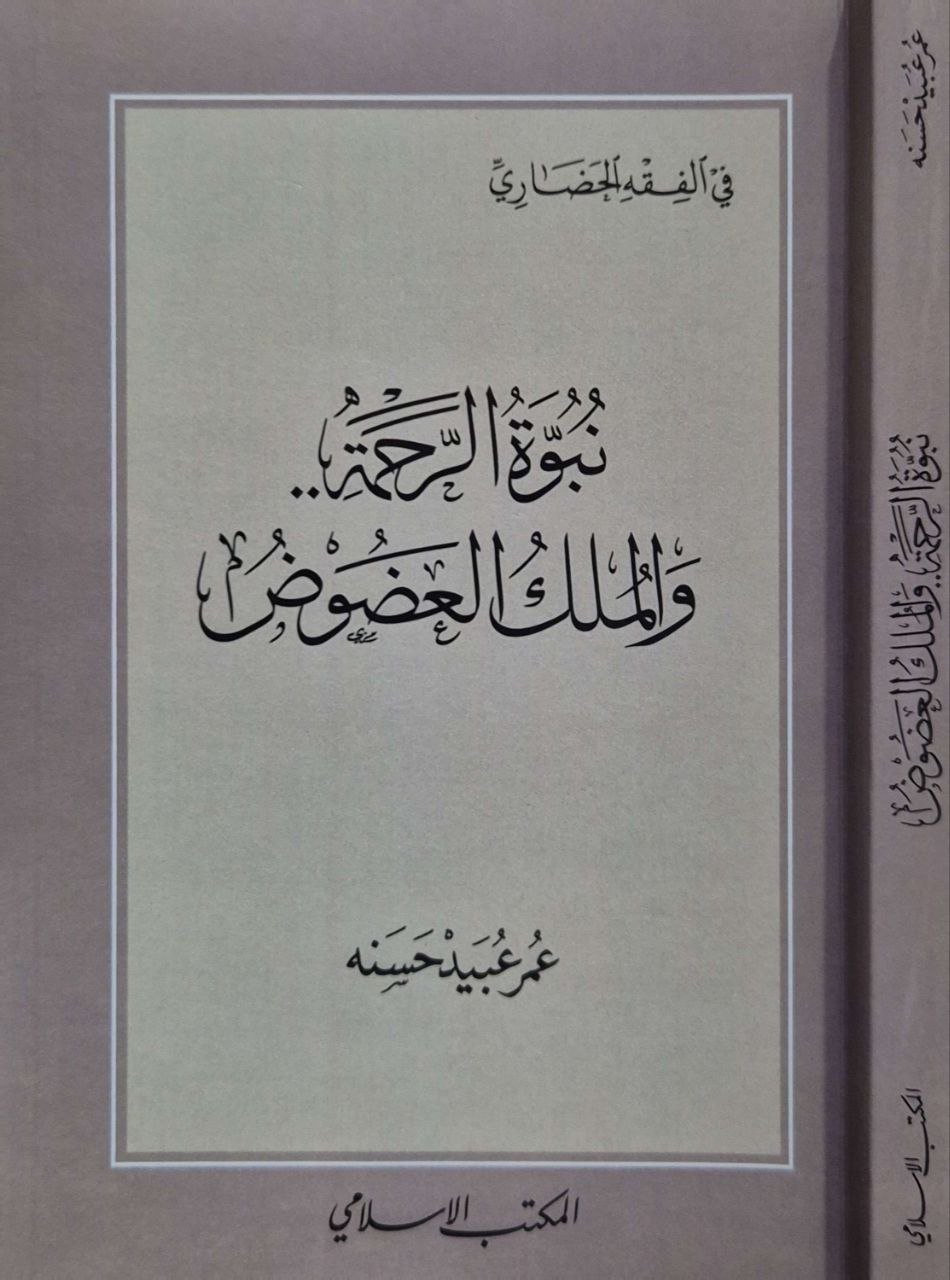 في الفِقْهِ الحَضَارِيِّ
نُبُوَّةُ الرَّحْمَةِ..
وَالمُلْكُ العَضُوضُ
عُمَر عُبَيْد حَسَنه
المكتب الإسلامي
عُمَر عُبَيْد حَسَنه
نُبُوَّةُ الرَّحْمَةِ.. وَالمُلْكُ العَضُوضُ
المكتب الإسلامي